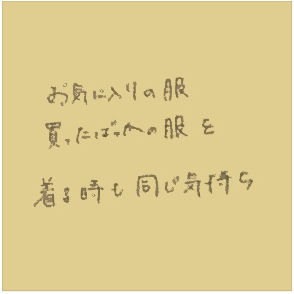 お気に入りの服
買ったばっかの服を
着る時も同じ気持ち